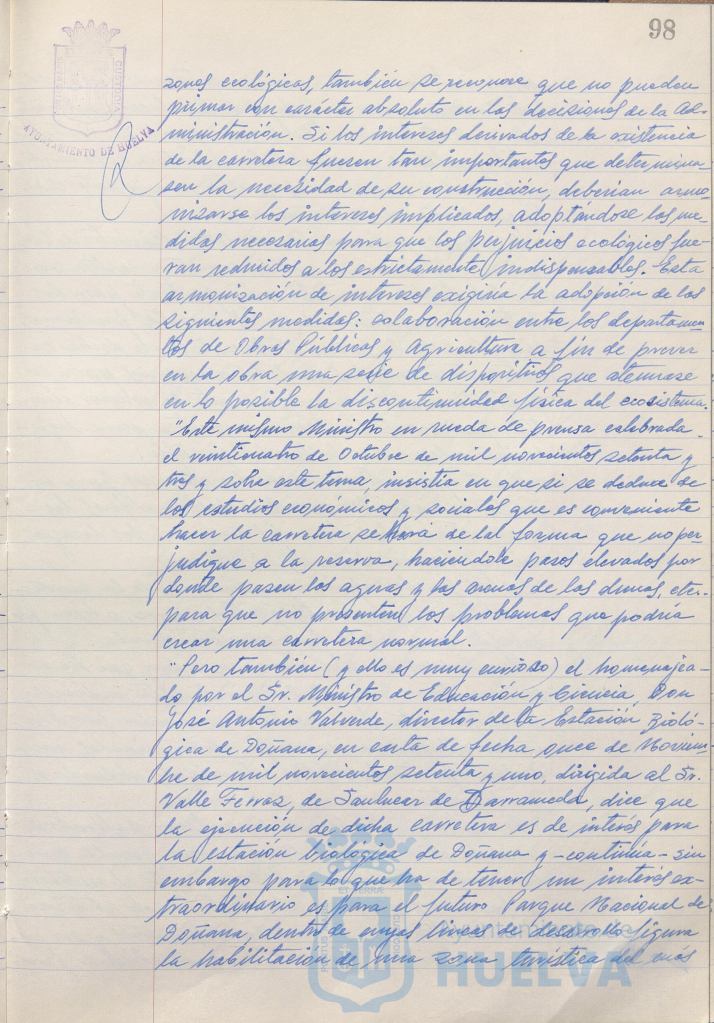 98
AYUNTAMIENTO DE HUELVA
zonas ecológicas, también se reconoce que no pueden
primar con carácter absoluto en las decisiones de la Ad-
ministración. Si los intereses derivados de la existencia
de la carretera fuesen tan importantes que determina-
sen la necesidad de su construcción, deberian armo-
nizarse los intereses implicados, adoptandose las me-
didas necesarias para que los perjuicios ecológicos fue-
ran reducidos a los estrictamente indispensables. Esta
armonización de intereses exigiria la adopción de las
siguientes medidas: colaboración entre los departamen-
tos de Obras Públicas y Agricultura a fin de prever
en la obra una serie de dispositivos que atenuase
en lo posible la discontinuidad física del ecosistema.
"Este mismo Ministro en rueda de prensa celebrada
el veinticuatro de Octubre de mil novecientos setenta y
tres y sobre este tema, insistia en que si se deduce de
los estudios económicos y sociales que es conveniente
hacer la carretera se hará de tal forma que no per-
judique a la reserva, haciéndole pasos elevados por
donde pasen las aguas y las arenas de las dunas, etc.
para que no presenten los problemas que podría
crear una carretera normal.
"Pero también (y ello es muy curioso) el homenajea-
do por el Sr. Ministro de Educación y Ciencia, Don
José Antonio Valverde, director de la Estación Bioló-
gica de Doñana, en carta de fecha once de Noviem-
bre de mil novecientos setenta y uno, dirigida al Sr.
Valle Ferraz, de Sanlucar de Barrameda, dice que
la ejecución de dicha carretera es de interés para
la estación biológica de Doñana y -continúa- sin
embargo para lo que ha de tener un interés ex-
traordinario es para el futuro Parque Nacional de
Doñana, dentro de cuyas líneas de desarrollo figura
la habilitación de una zona turística del más
Ayuntamiento de
HUELVA